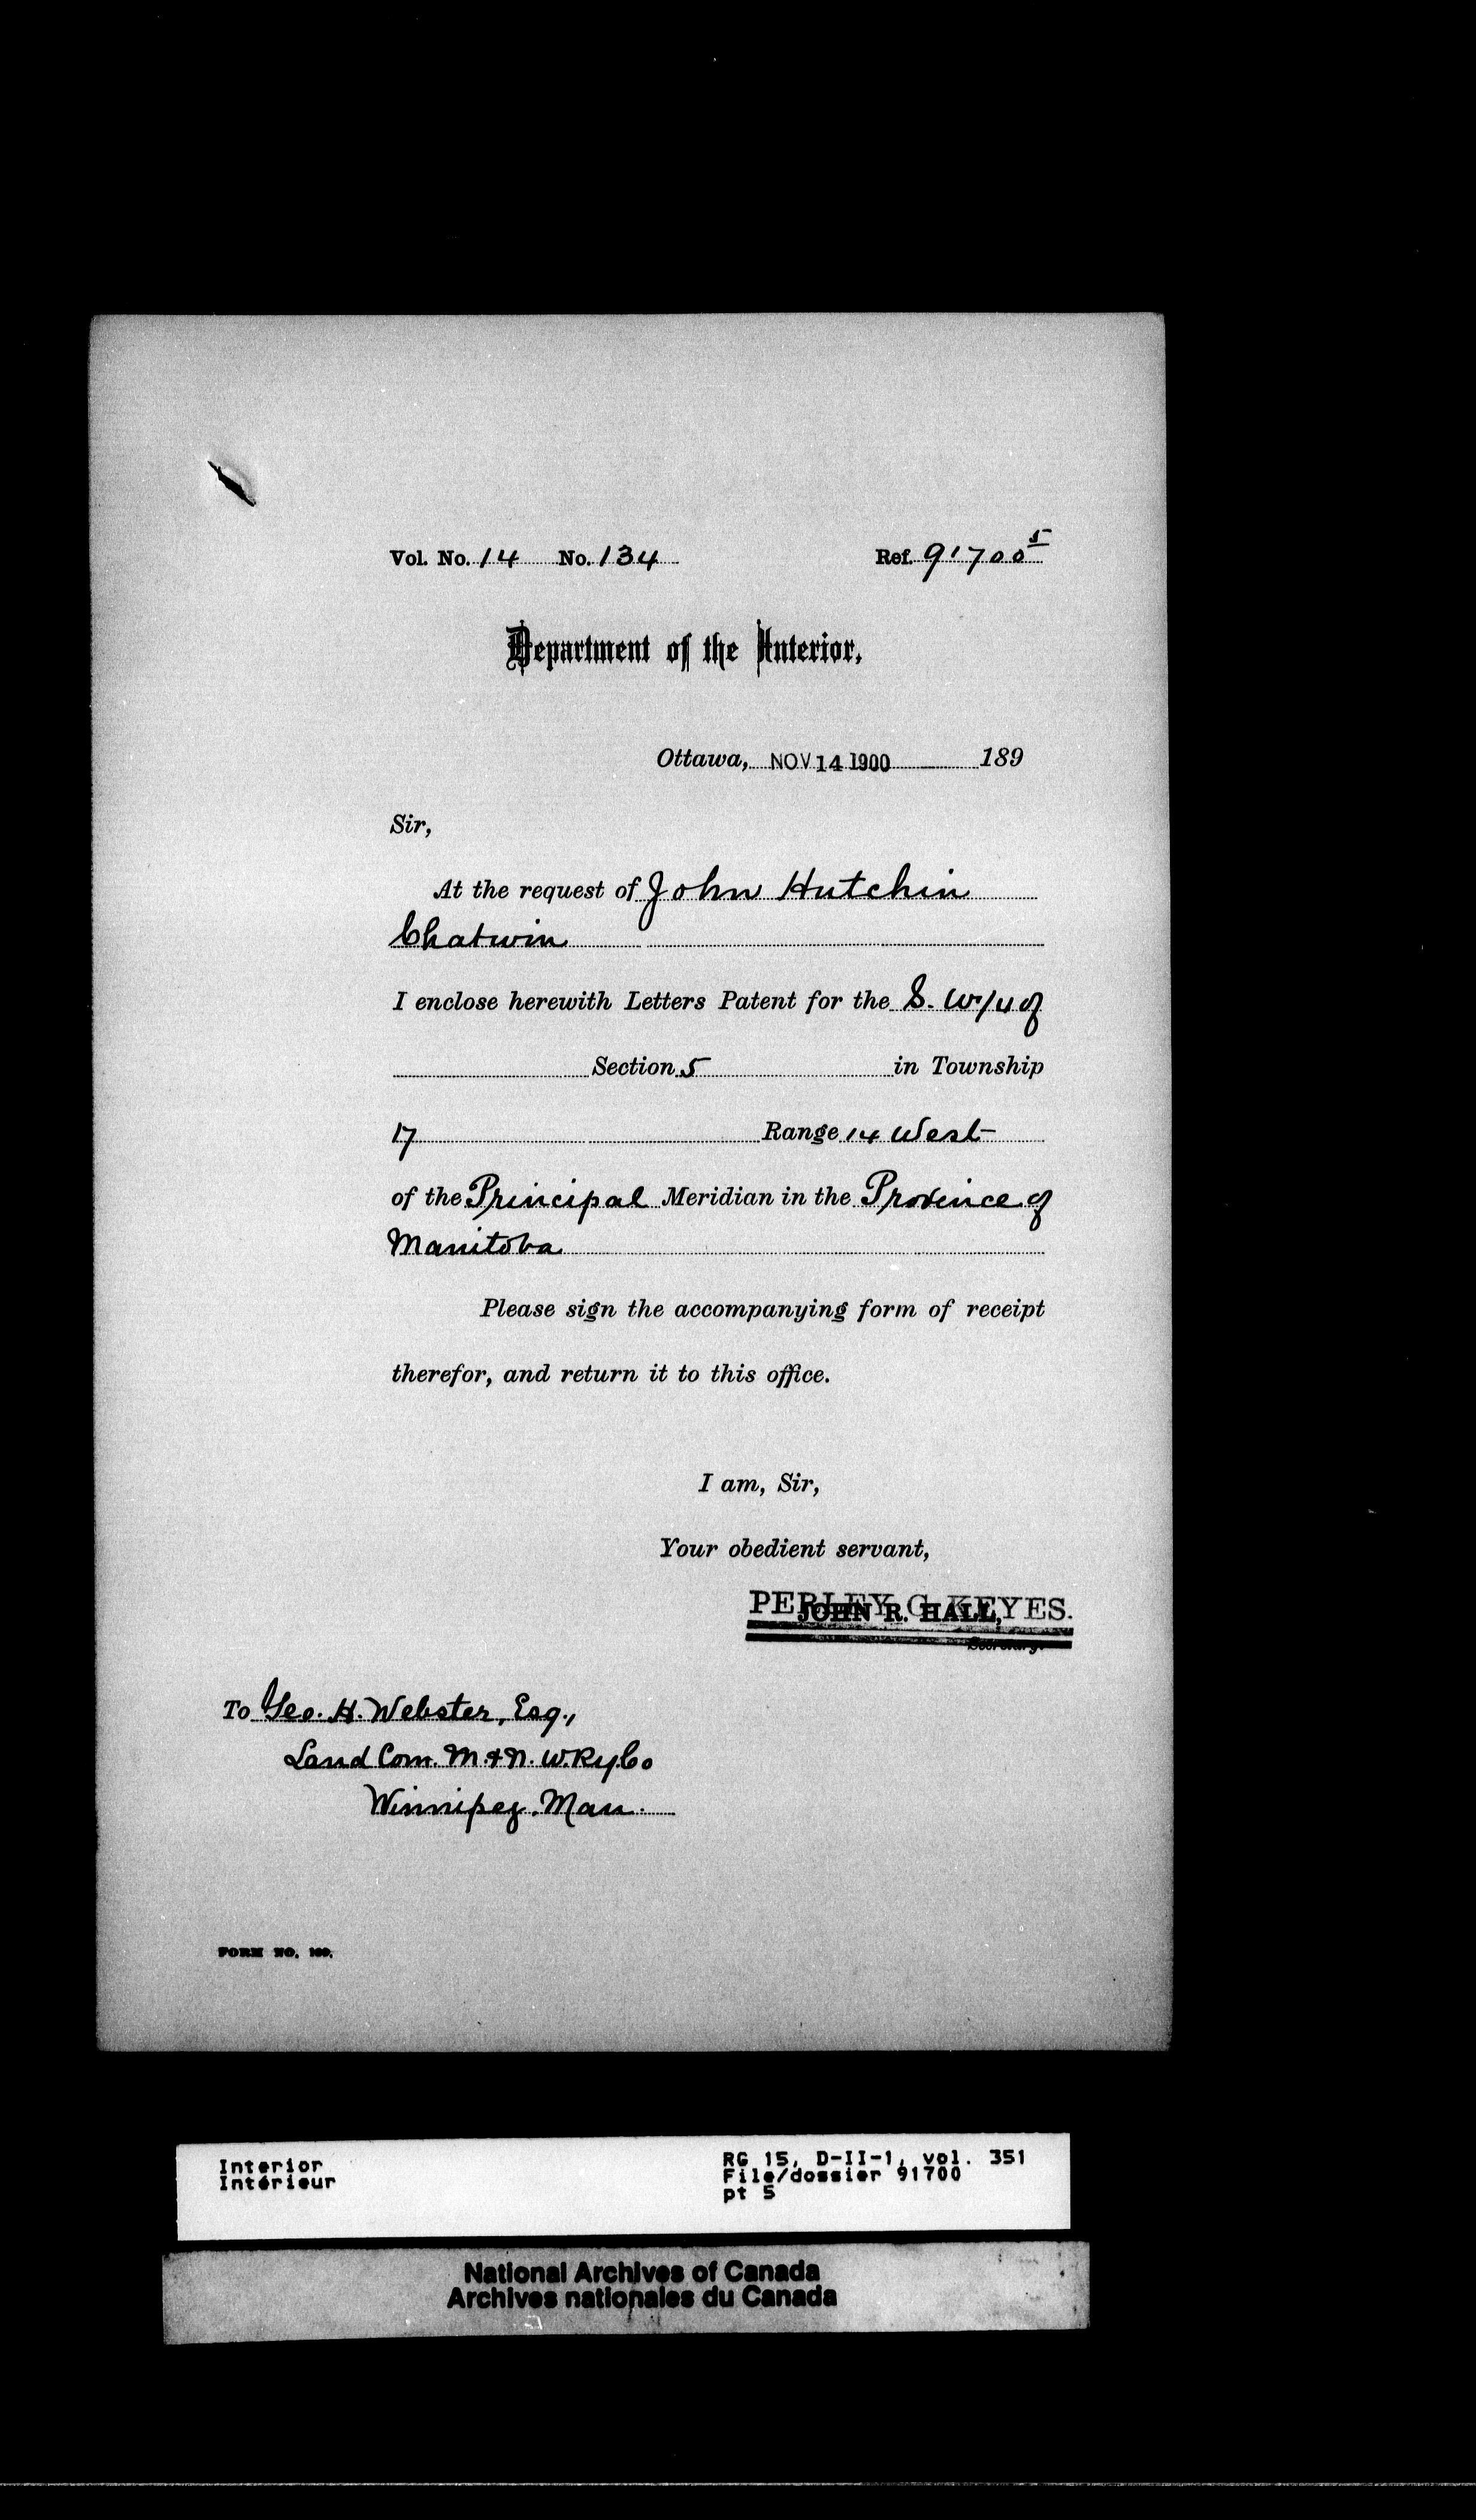 Vol. No. 14 No. 134 Ref. 91700 5
Department of the Interior,
Ottawa, NOV 14 1900 189
Sir,
At the request of John Hutchin
Chatwin
I enclose herewith Letters Patent for the S. W 1/4 of
Section 5 in Township
17 Range 14 West
of the Principal Meridian in the Province of
Manitoba
Please sign the accompanying form of receipt
therefor, and return it to this office.
I am, Sir,
Your obedient servant,
PERLEY G. KEYES.
JOHN R. HALL,
Secretary.
To Geo. H. Webster, Esq.,
Land Com. M. & N. W. Ry. Co
Winnipeg. Man.
FORM NO. 109.
Interior
Intérieur
RG 15, D-II-1, vol. 351
File/dossier 91700
pt 5
National Archives of Canada
Archives nationales du Canada